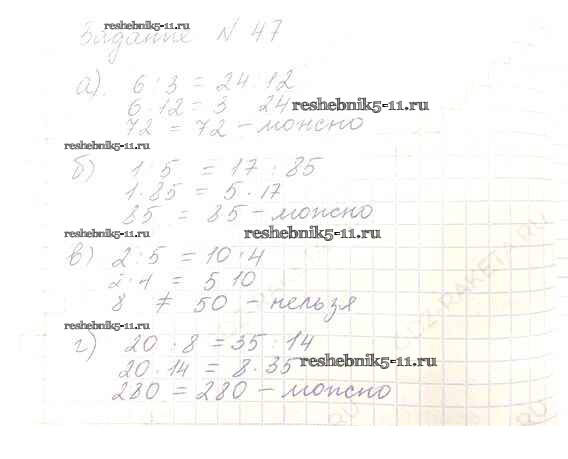 reshebnik5-11.ru
Задание № 47
а). 6 : 3 = 24 : 12
6 · 12 = 3 24
reshebnik5-11.ru
72 = 72 – можно
reshebnik5-11.ru
б) 1 : 5 = 17 : 85
1 · 85 = 5 · 17
85 = 85 – можно
reshebnik5-11.ru
reshebnik5-11.ru
в) 2 : 5 = 10 : 4
2 · 4 = 5 10
8 ≠ 50 – нельзя
reshebnik5-11.ru
г) 20 : 8 = 35 : 14
20 · 14 = 8 · 35
reshebnik5-11.ru
280 = 280 – можно